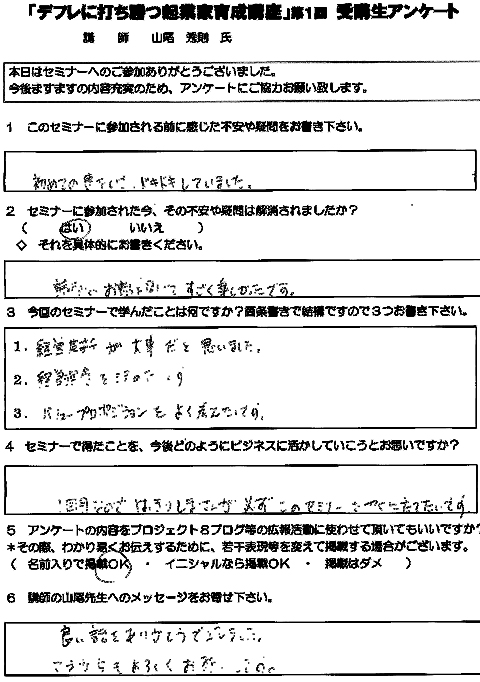 「デフレに打ち勝つ起業家育成講座」第1回 受講生アンケート
講 師 山尾 秀則 氏
本日はセミナーへのご参加ありがとうございました。
今後ますますの内容充実のため、アンケートにご協力お願い致します。
1 このセミナーに参加される前に感じた不安や疑問をお書き下さい。
初めての ドキドキしていました。
2 セミナーに参加された今、その不安や疑問は解消されましたか?
( はい いいえ )
◇ それを具体的にお書きください。
すごく楽しかったです。
3 今回のセミナーで学んだことは何ですか?箇条書きで結構ですので3つお書き下さい。
1. 経営 が 大事 だと 思いました。
2. 経営 を
3. バリュープロポジション を よく考えたいです。
4 セミナーで得たことを、今後どのようにビジネスに活かしていこうとお思いですか?
1回目なので はっきりしませんが 必ず このセミナー
5 アンケートの内容をプロジェクト8ブログ等の広報活動に使わせて頂いてもいいですか?
*その際、わかり易くお伝えするために、若干表現等を変えて掲載する場合がございます。
( 名前入りで掲載OK ・ イニシャルなら掲載OK ・ 掲載はダメ )
6 講師の山尾先生へのメッセージをお寄せ下さい。
良い話をありがとうございました。
これからもよろしくお願いします。